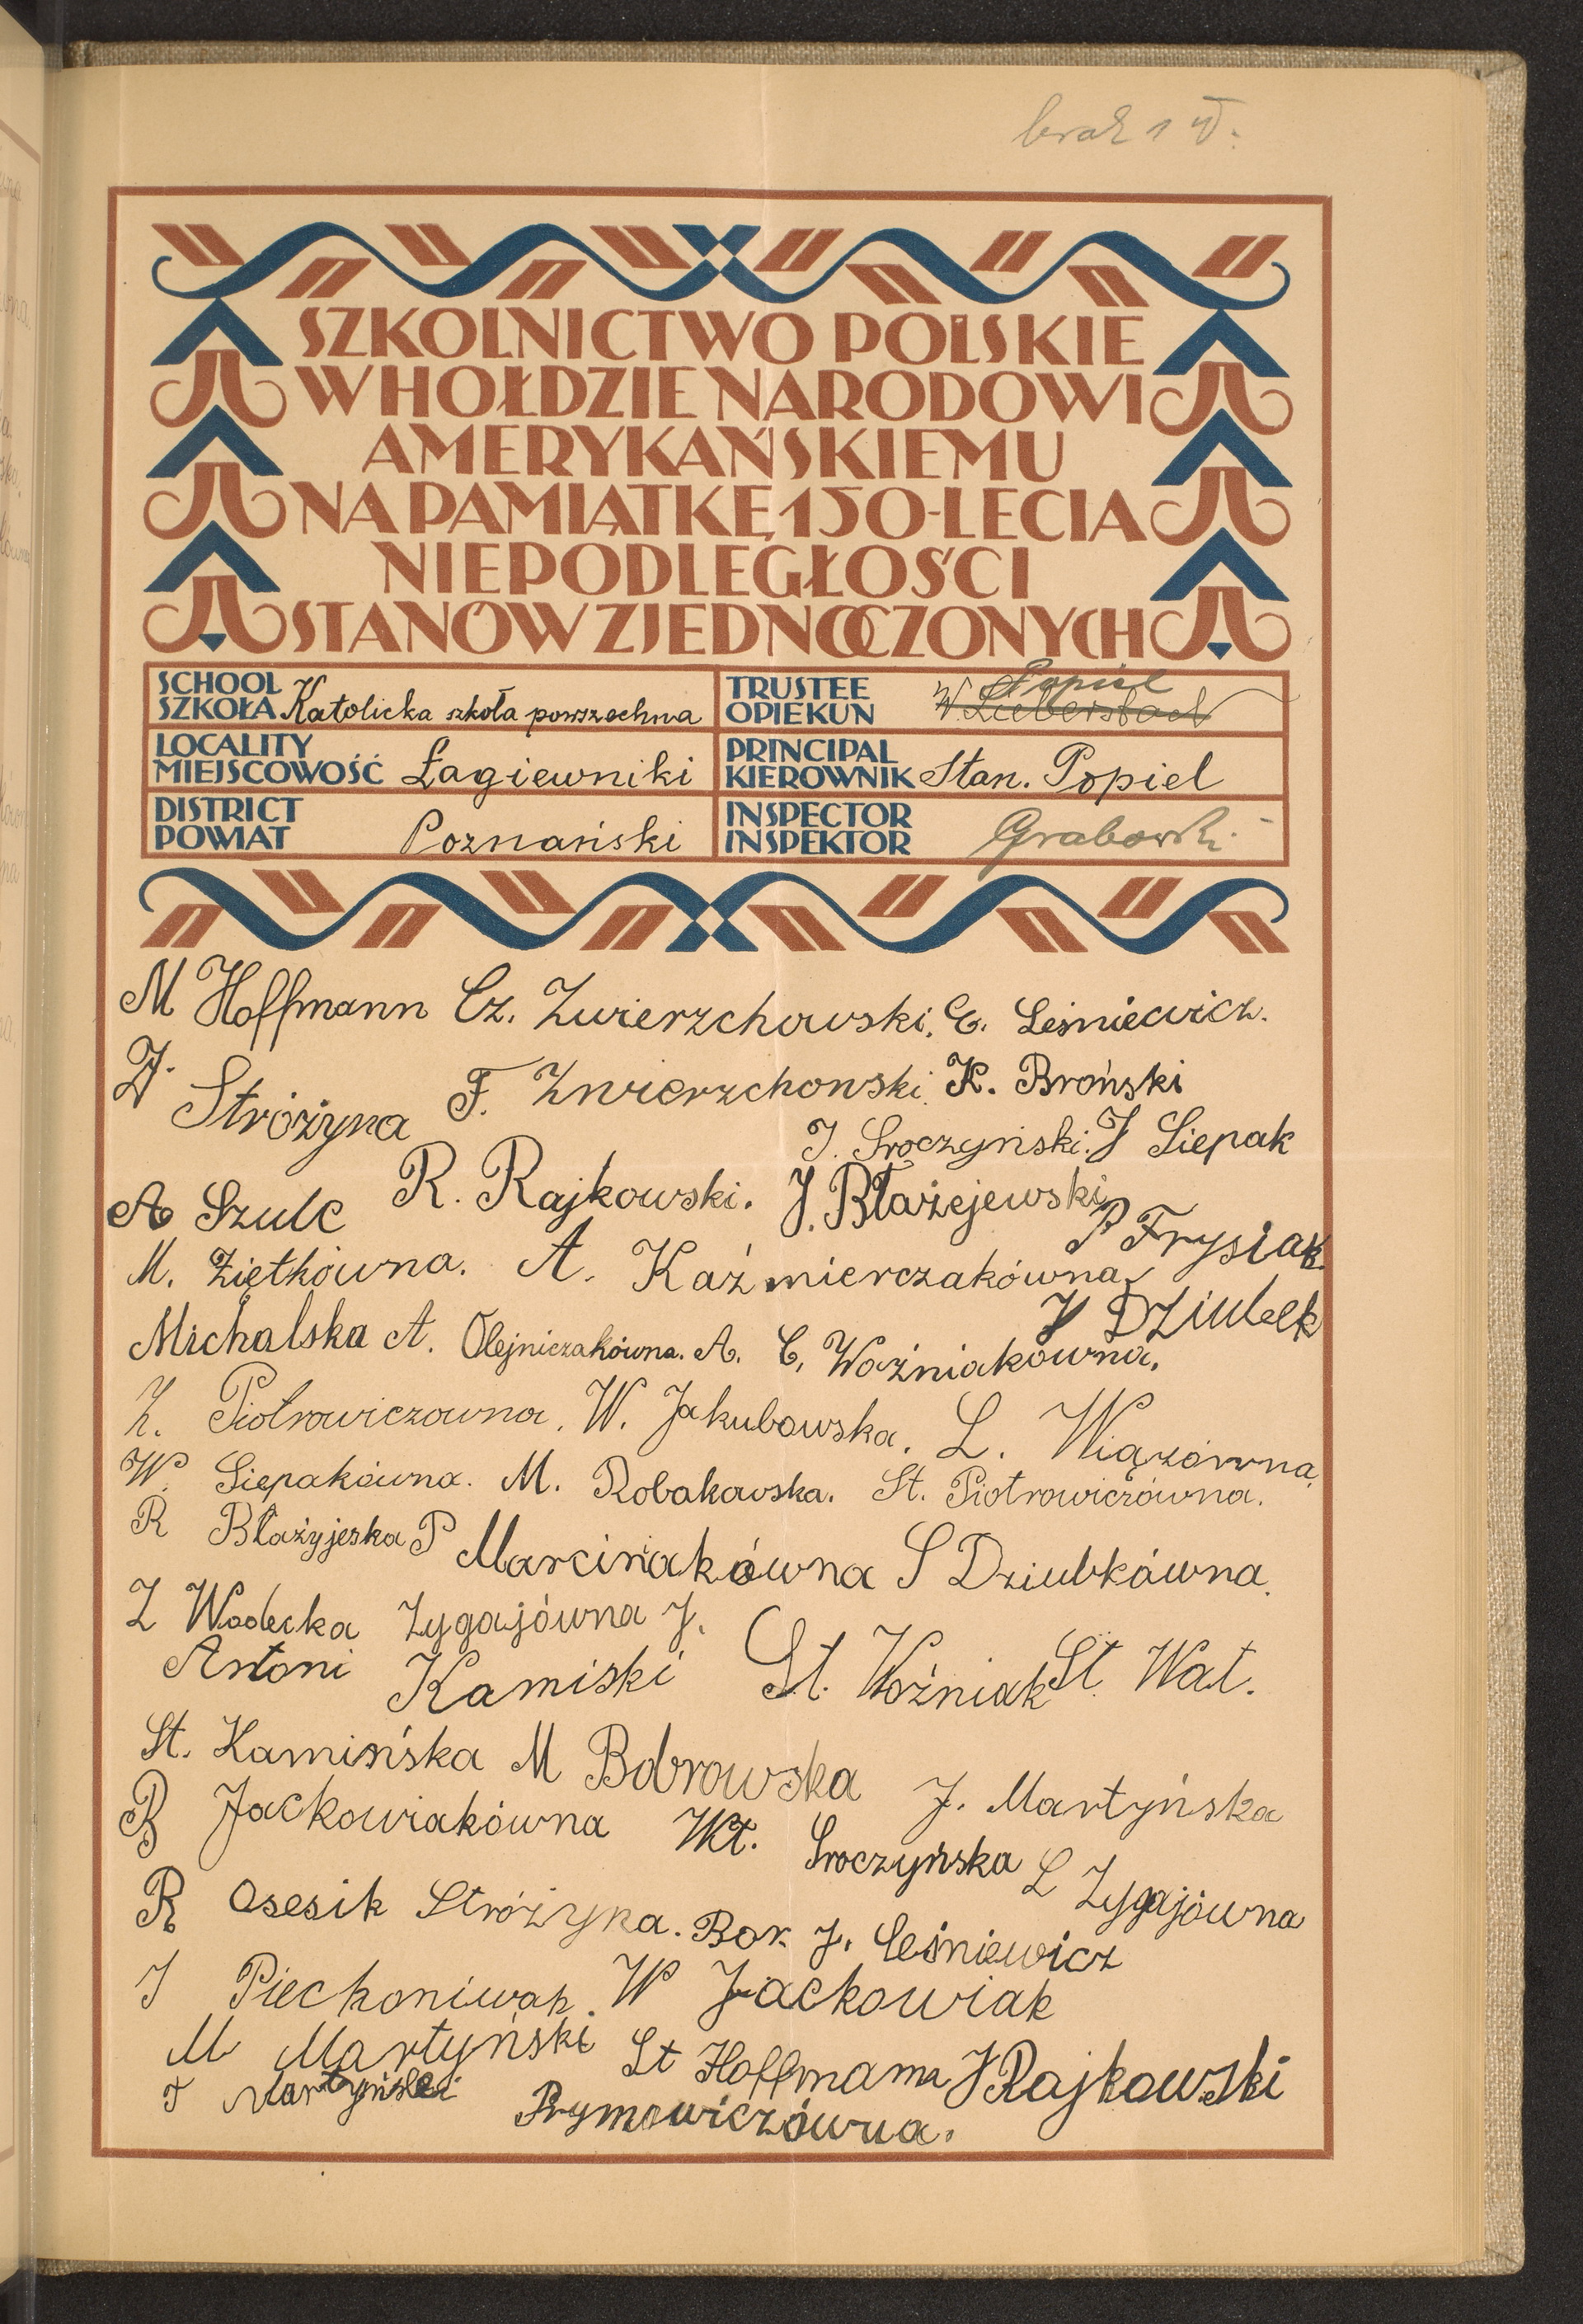 brak 1
SZKOLNICTWO POLSKIE
W HOŁDZIE NARODOWI
AMERYKAŃSKIEMU
NA PAMIĄTKĘ 150-LECIA
NIEPODLEGŁOŚCI
STANÓW ZJEDNOCZONYCH
SCHOOL
SZKOŁA Katolicka szkoła powszechna
TRUSTEE
OPIEKUN Popiel
LOCALITY
MIEJSCOWOŚĆ Łagiewniki
PRINCIPAL
KIEROWNIK Stan. Popiel
DISTRICT
POWIAT Poznański
INSPECTOR
INSPEKTOR Grabowski
M Hoffmann Cz. Zwierzchowski. C. Leśniewicz.
Stróżyna F. Zwierzchowski. K. Broński
J. Sroczyński. J Siepak
A Szulc R. Rajkowski. J. Błażejewski
P Frysiak.
M. Ziętkówna. A. Kaźmierczakówna
J Dziubek
Michalska A. Olejniczakówna. A. C. Woźniakówna.
Z. Piotrowiczowna. W. Jakubowska. L. Wiązówna
W. Siepakówna. M. Robakowska. St. Piotrowiczówna.
R Błażyjeska P Marciniakówna S Dziubkówna.
Z Wodecka Zygajówna J.
Antoni Kamiski St. Woźniak St. Wat.
St. Kamińska M Bobrowska J. Martyńska
B Jackowiakówna Wł. Sroczyńska L Zygajówna
R Osesik Stróżyna. Bor. J. Leśniewicz
J Piechoniwak. W Jackowiak
M Martyński St Hoffmann J Rajkowski
F Martyński Prymowiczówna.